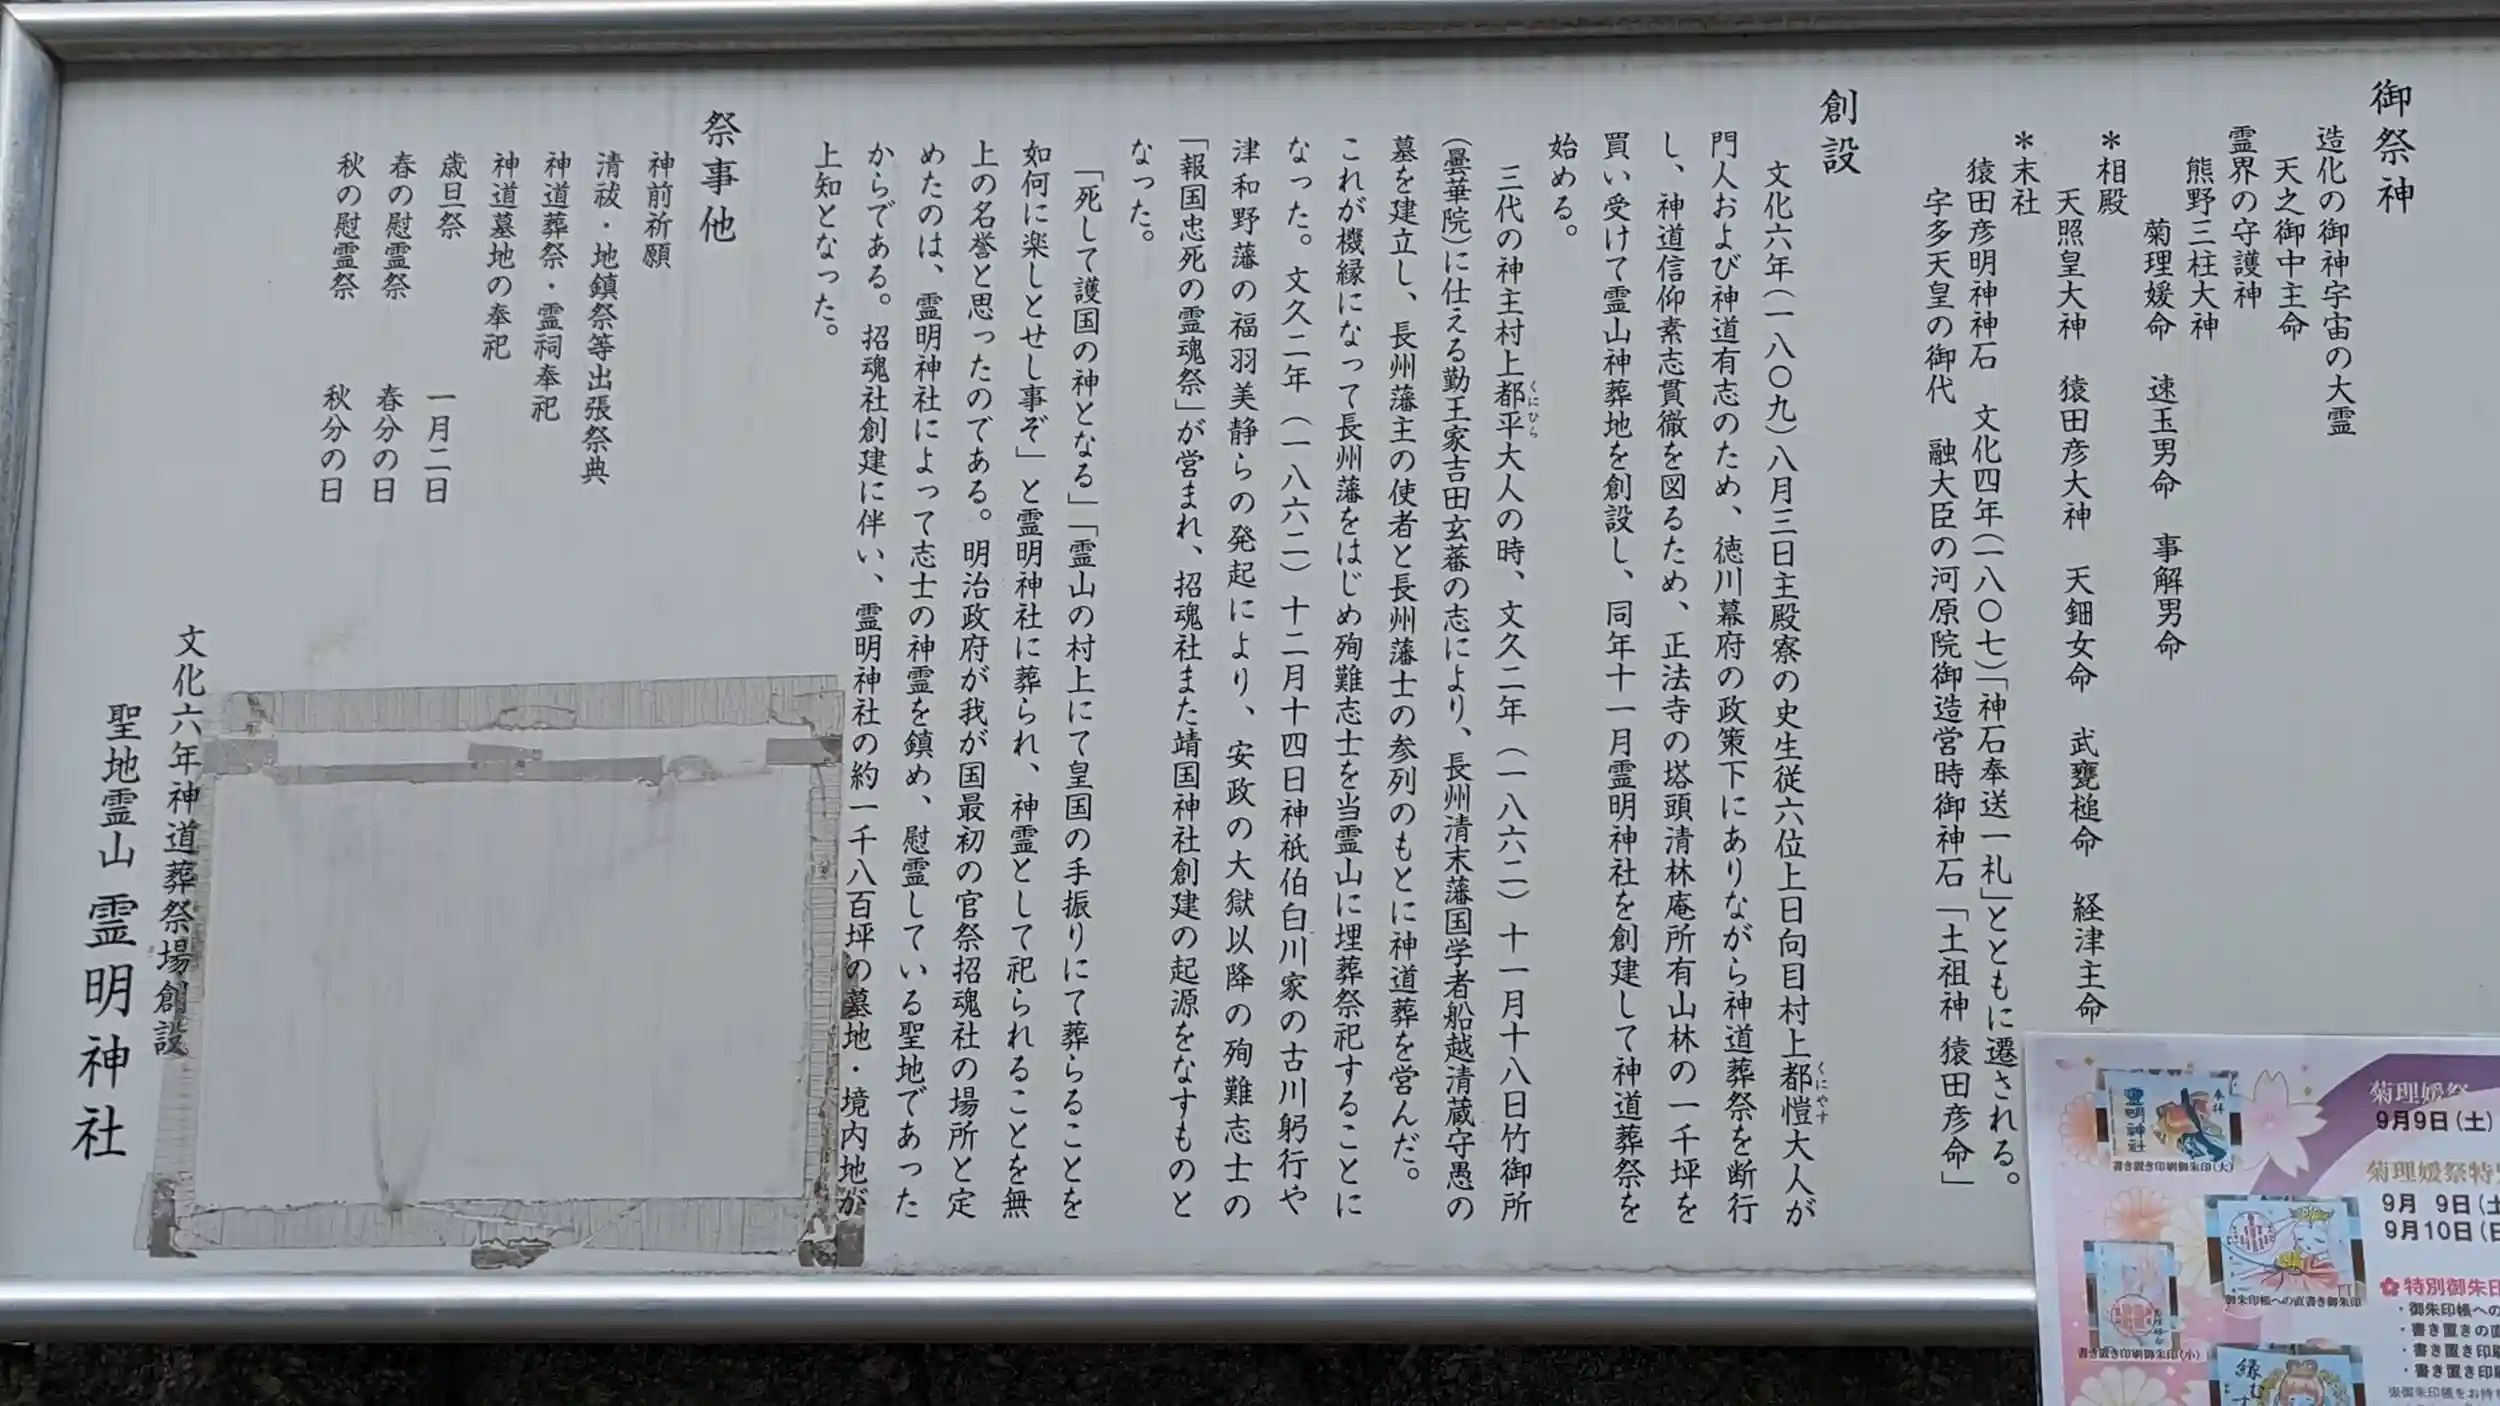 御祭神
造化の御神宇宙の大霊
天之御中主命
霊界の守護神
熊野三柱大神
菊理媛命 速玉男命 事解男命
＊相殿
天照皇大神 猿田彦大神 天鈿女命 武甕槌命 経津主命
＊末社
猿田彦明神神石 文化四年(一八〇七)「神石奉送一札」とともに遷される。
宇多天皇の御代 融大臣の河原院御造営時御神石「土祖神 猿田彦命」
創設
文化六年(一八〇九)八月三日主殿寮の史生従六位上日向目村上都愷大人が
くにやす
門人および神道有志のため、徳川幕府の政策下にありながら神道葬祭を断行
し、神道信仰素志貫徹を図るため、正法寺の塔頭清林庵所有山林の一千坪を
買い受けて霊山神葬地を創設し、同年十一月霊明神社を創建して神道葬祭を
始める。
三代の神主村上都平大人の時、文久二年(一八六二)十一月十八日竹御所
くにひら
(曇華院)に仕える勤王家吉田玄蕃の志により、長州清末藩国学者船越清蔵守愚の
墓を建立し、長州藩主の使者と長州藩士の参列のもとに神道葬を営んだ。
これが機縁になって長州藩をはじめ殉難志士を当霊山に埋葬祭祀することに
なった。文久二年(一八六二)十二月十四日神祇伯白川家の古川躬行や
津和野藩の福羽美静らの発起により、安政の大獄以降の殉難志士の
「報国忠死の霊魂祭」が営まれ、招魂社また靖国神社創建の起源をなすものと
なった。
「死して護国の神となる」「霊山の村上にて皇国の手振りにて葬らることを
如何に楽しとせし事ぞ」と霊明神社に葬られ、神霊として祀られることを無
上の名誉と思ったのである。明治政府が我が国最初の官祭招魂社の場所と定
めたのは、霊明神社によって志士の神霊を鎮め、慰霊している聖地であった
からである。招魂社創建に伴い、霊明神社の約一千八百坪の墓地・境内地が
上知となった。
祭事他
神前祈願
清祓・地鎮祭等出張祭典
神道葬祭・霊祠奉祀
神道墓地の奉祀
歳旦祭 一月二日
春の慰霊祭 春分の日
秋の慰霊祭 秋分の日
文化六年神道葬祭場創設
聖地霊山 霊明神社
菊理媛祭
9月9日(土)
菊理媛祭特
9月 9日(土
9月10日(日
特別御朱印
・御朱印帳への
・書き置きの直
・書き置き印刷
・書き置き印刷
※御朱印帳をお持ち
奉拝
霊明神社
書き置き印刷御朱印(大)
御朱印帳への直書き御朱印
書き置き印刷御朱印(小)
縁むす